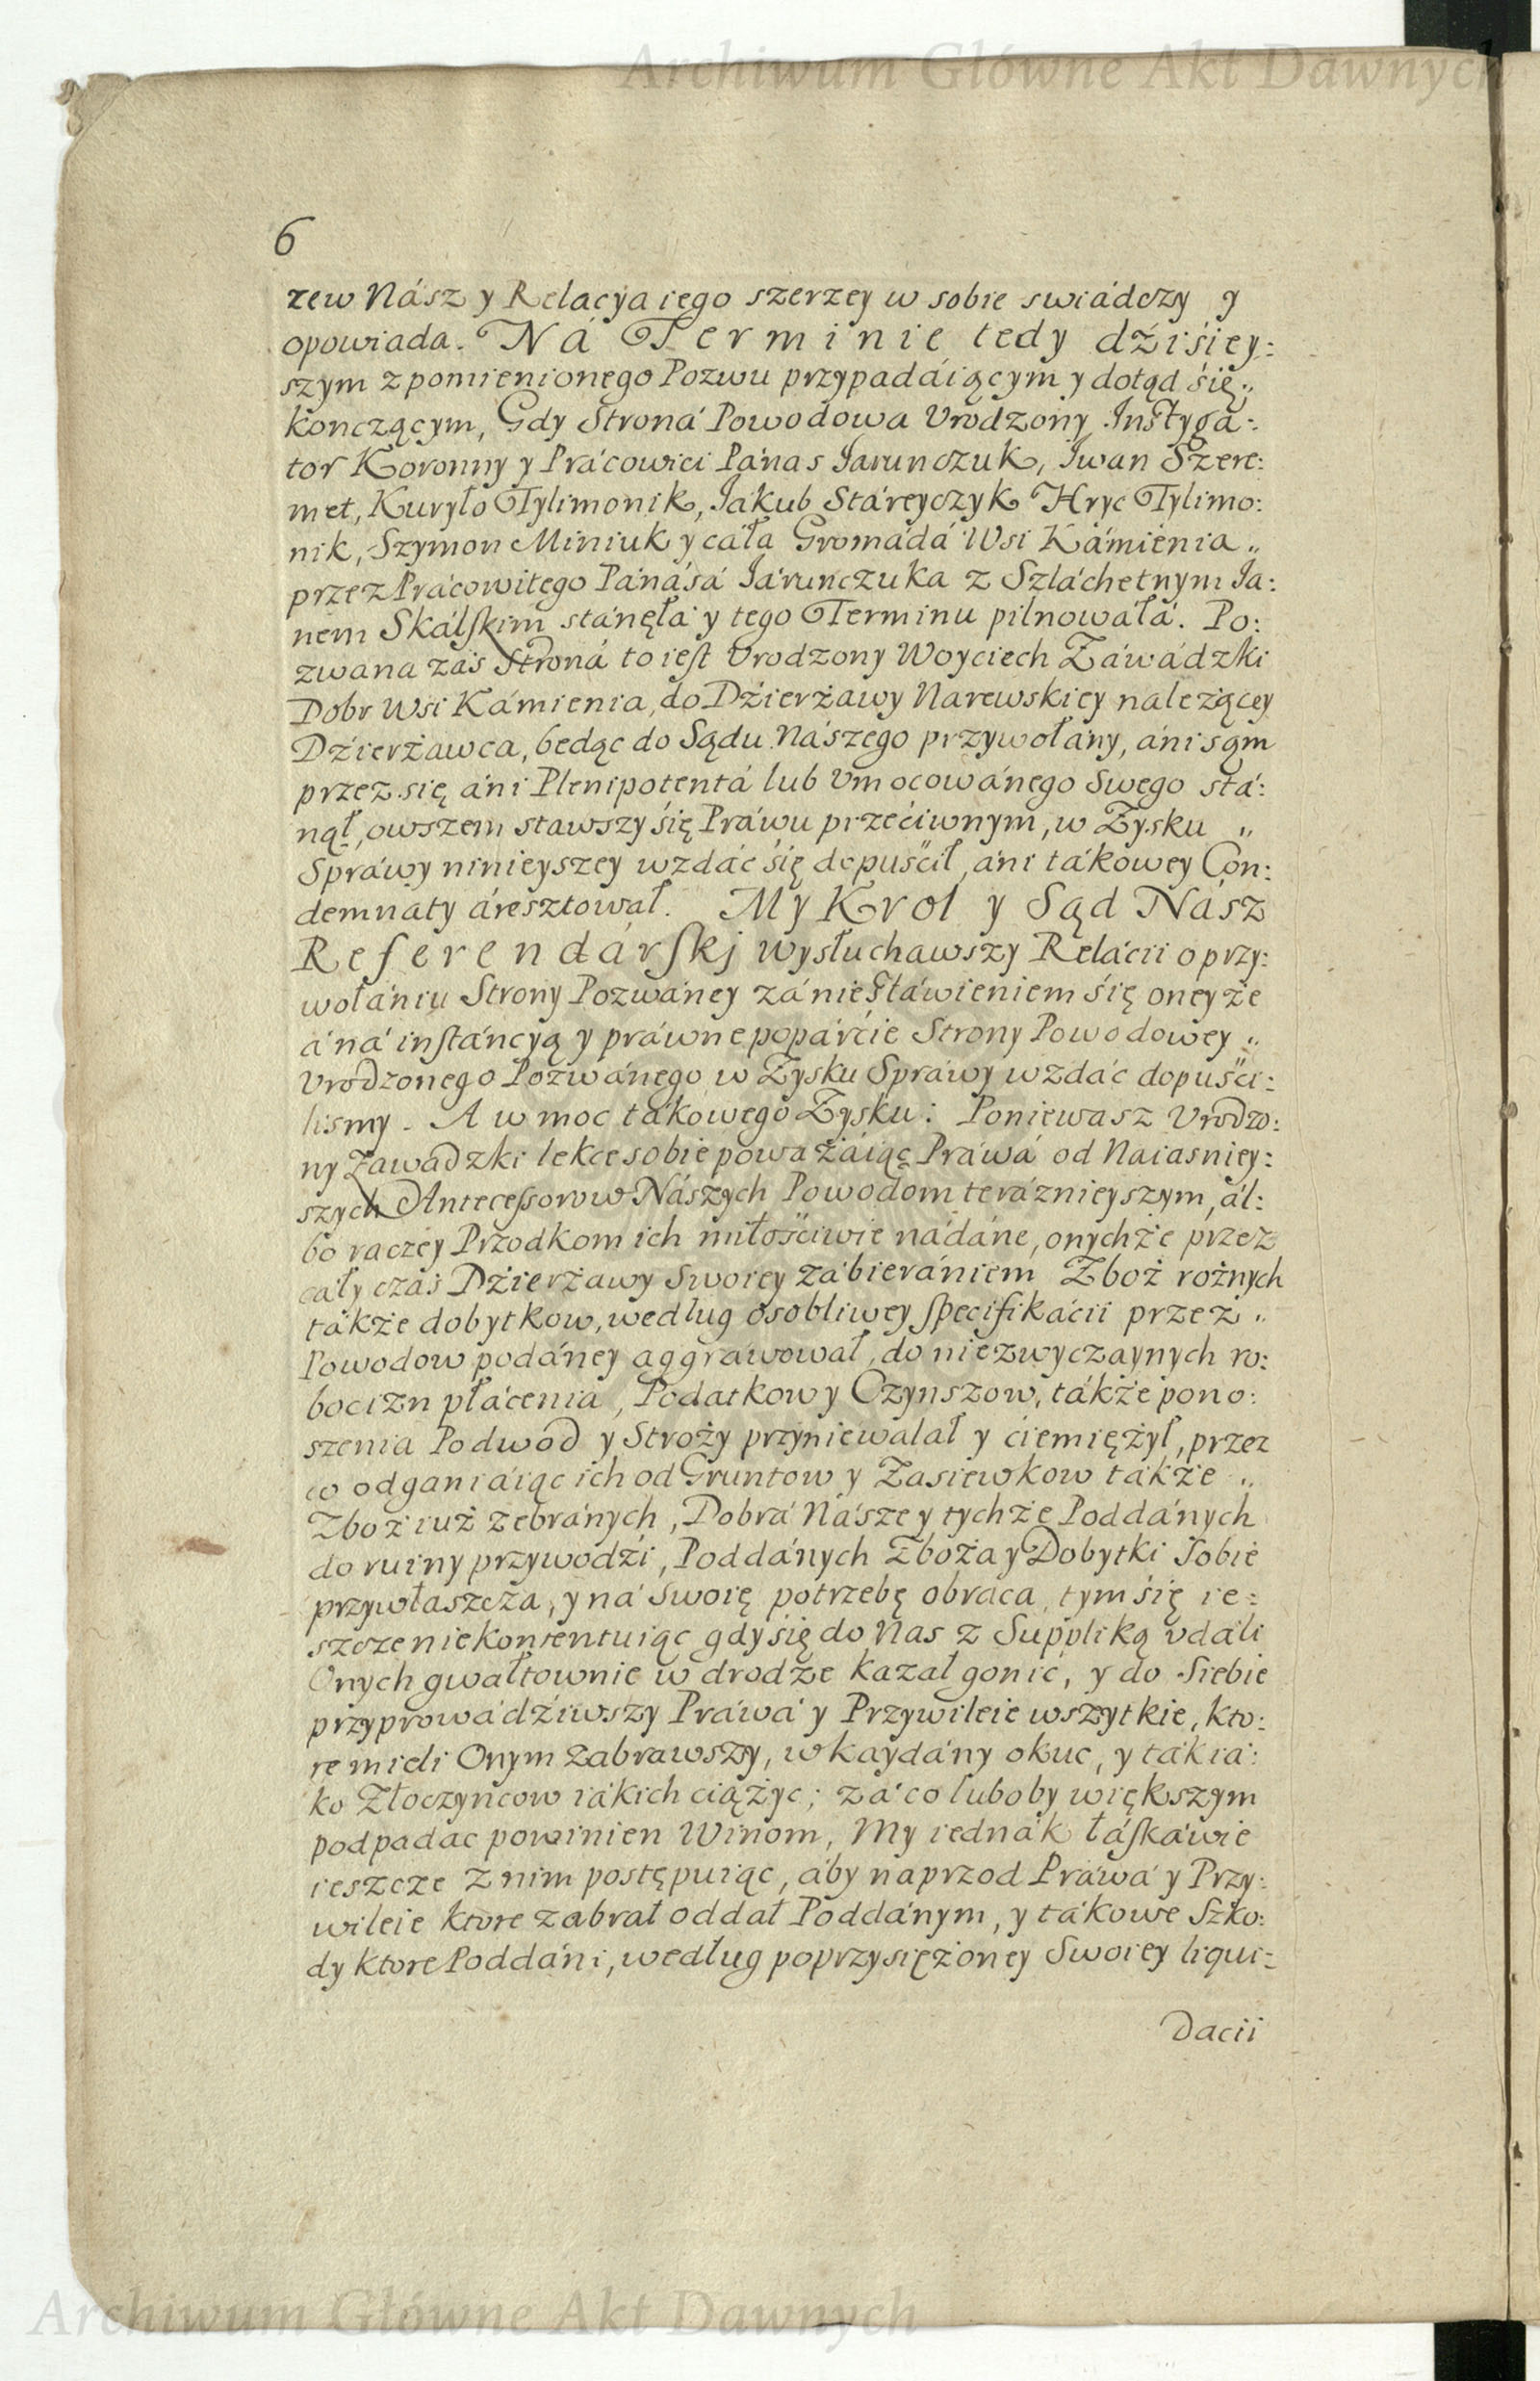 Archiwum Główne Akt Dawnych
6
zew Nász y Relacya iego szerzey w sobie swiádczy y
opowiada. Ná Terminie tedy dźiśiey:
szym z pomienionego Pozwu przypadáiącym y dotąd się„
konczącym, Gdy Stroná Powodowa Vrodzony Instyga:
tor Koronny y Prácowici Pánas Jarunczuk, Jwan Szere:
met, Kuryło Tylimonik, Jakub Stáreyczyk Hryc Tylimo:
nik, Szymon Miniuk y cáła Gromádá Wsi Kámienia„
przez Prácowitego Pánásá Járunczuka z Szláchetnym Ja:
nem Skálskim stánęłá y tego Terminu pilnowáłá. Po:
zwana zás Stroná to iest Vrodzony Woyciech Záwádzki
Dobr Wsi Kámienia, do Dźierżawy Narewskiey nalezącey
Dźierżawca, bedąc do Sądu Nászego przywołány, áni sąm
przez się áni Plenipotentá lub Vmocowánego Swego stá:
nął, owszem stawszy się Práwu przećiwnym, w Zysku „
Spráwy ninieyszey wzdáć się dopuścił, áni tákowey Con:
demnaty áresztował. My Krol y Sąd Nász
Referendárskj wysłuchawszy Relácii o przy:
wołániu Strony Pozwáney zá nie stáwieniem się oney że
á ná instáncyą y práwne popárćie Strony Powodowey„
Vrodzonego Pozwánego w Zysku Spráwy wzdáć dopuści:
lismy. A w moc tákowego Zysku: Poniewasz Vrodzo:
ny Zawádzki lekce sobie poważáiąc Práwá od Naiasniey:
szych Antecessorow Nászych Powodom teráznieyszym, ál:
bo raczey Przodkom ich miłośćiwie nádáne, onychże przez
cáły czás Dźierżawy Swoiey zábierániem Zboż rożnych
tákże dobytkow, według osobliwey specifikácii przez„
Powodow podáney aggrawował, do niezwyczaynych ro:
bocizn płácenia, Podatkow y Czynszow, tákże pono:
szenia Podwod y Stroży przyniewalał y ćiemiężył, przez
co odganiáiąc ich od Gruntow y Zasiewkow tákże„
Zboż iuż zebránych, Dobrá Násze y tychże Poddánych
do ruiny przywodźi, Poddánych Zboża y Dobytki Sobie
przywłaszcza, y ná Swoię potrzebę obraca, tym się ie:
szcze niekontentuiąc gdy się do Nas z Suppliką vdáli
Onych gwałtownie w drodze kazał gonić, y do Siebie
przyprowádźiwszy Práwá y Przywileie wszytkie, kto:
re mieli Onym zabrawszy, w kaydány okuc, y ták iá:
ko Złoczyncow iákich ciążyc; zá co luboby większym
podpadac powinien Winom, My iednák łáskáwie
ieszcze z nim postępuiąc, áby naprzod Práwá y Przy:
wileie ktore zabrał oddał Poddánym, y tákowe Szko:
dy ktore Poddáni, według poprzysiężoney Swoiey liqui:
dacii
Archiwum Główne Akt Dawnych